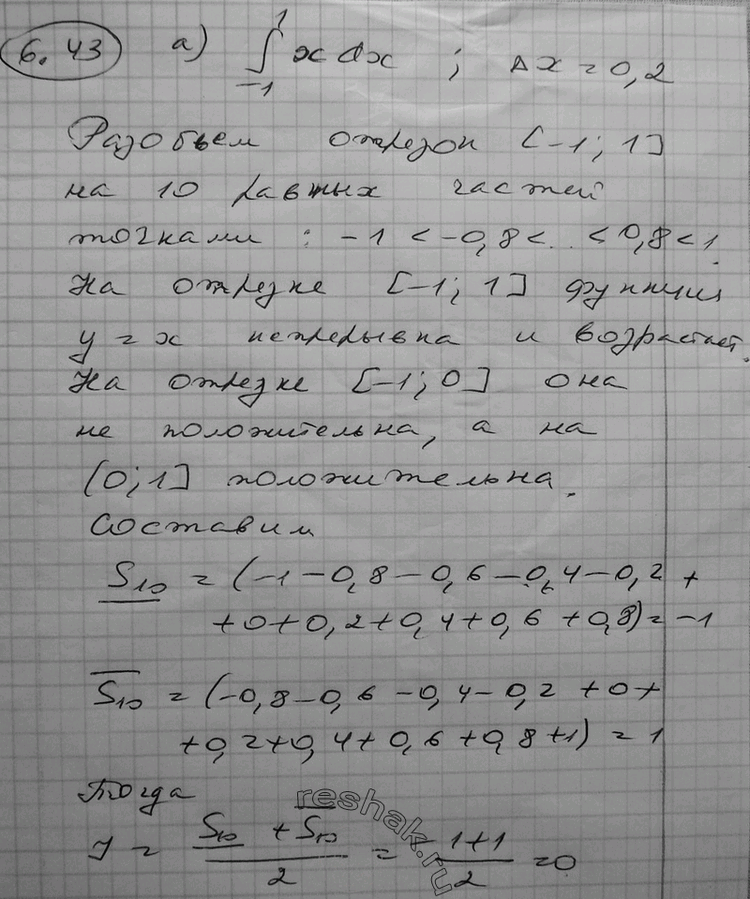 6.43 а) ∫₋₁¹ x dx ; Δx = 0,2
Разобьем отрезок [-1; 1]
на 10 равных частей
точками : -1 < -0,8 < .. < 0,8 < 1.
На отрезке [-1; 1] функция
y = x непрерывна и возрастает.
На отрезке [-1; 0] она
не положительна, а на
(0; 1] положительна.
Составим
S₁₀ = (-1 - 0,8 - 0,6 - 0,4 - 0,2 +
+ 0 + 0,2 + 0,4 + 0,6 + 0,8) = -1
S₁₀ = (-0,8 - 0,6 - 0,4 - 0,2 + 0 +
+ 0,2 + 0,4 + 0,6 + 0,8 + 1) = 1
Тогда
reshak.ru
J = (S₁₀ + S₁₀)/2 = (-1+1)/2 = 0